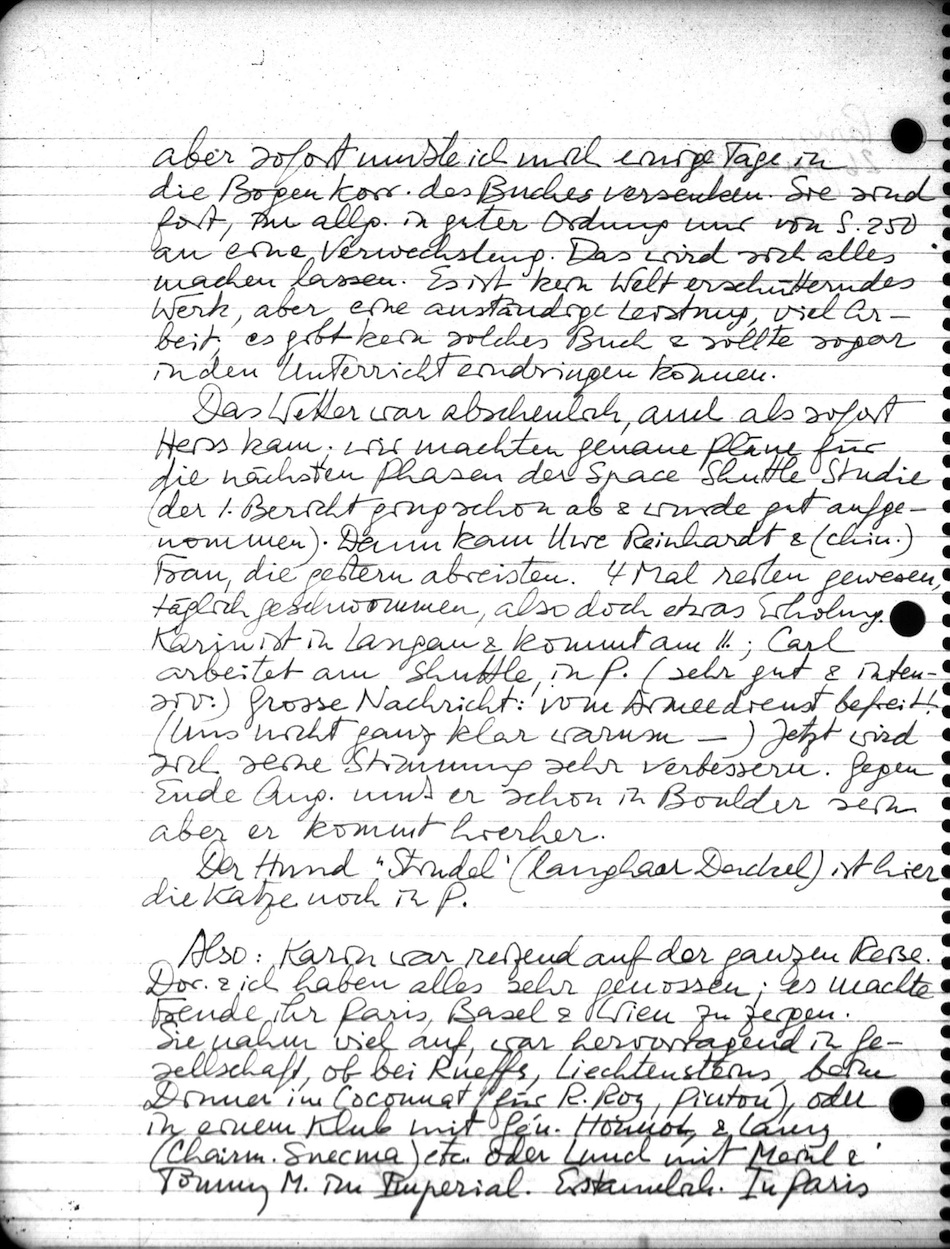 aber sofort musste ich mich einige Tage in
die Bogenkorr. des Buches versenken. Sie sind
fort, im allg. in guter Ordnung nur von S. 250
an eine Verwechslung. Das wird sich alles
machen lassen. Es ist kein Welt erschütterndes
Werk, aber eine anständige Leistung, viel Ar-
beit, es gibt kein solches Buch & sollte sogar
in den Unterricht eindringen können.
Das Wetter war abscheulich, auch als sofort
Heiss kam. wir machten genaue Pläne für
die nächsten Phasen der Space Shuttle Studie
(der 1. Bericht ging schon ab & wurde gut aufge-
nommen). Dann kam Uwe Reinhardt & (chin.)
Frau, die gestern abreisten. 4 Mal reiten gewesen,
täglich geschwommen, also doch etwas Erholung.
Karin ist in Langau & kommt am 11.; Carl
arbeitet am Shuttle, in P. (sehr gut & inten-
siv.) Grosse Nachricht: vom Armeedienst befreit!!
(Uns nicht ganz klar warum —) Jetzt wird
sich seine Stimmung sehr verbessern. Gegen
Ende Aug. muss er schon in Boulder sein
aber er kommt hierher.
Der Hund "Strudel" (langhaar Dackel) ist hier
die Katze noch in P.
Also: Karin war reizend auf der ganzen Reise.
Dor. & ich haben alles sehr genossen; es machte
Freude ihr Paris, Basel & Wien zu zeigen.
Sie nahm viel auf, war hervorragend in Ge-
sellschaft, ob bei Rueffs, Liechtensteins, beim
Dinner im Coconnat (für R. Roy, Pinton), oder
in einem Klub mit Gén. &
(Chairm. Snecma) etc. oder Lunch mit &
Tommy M. im Imperial. Erstaunlich. In Paris